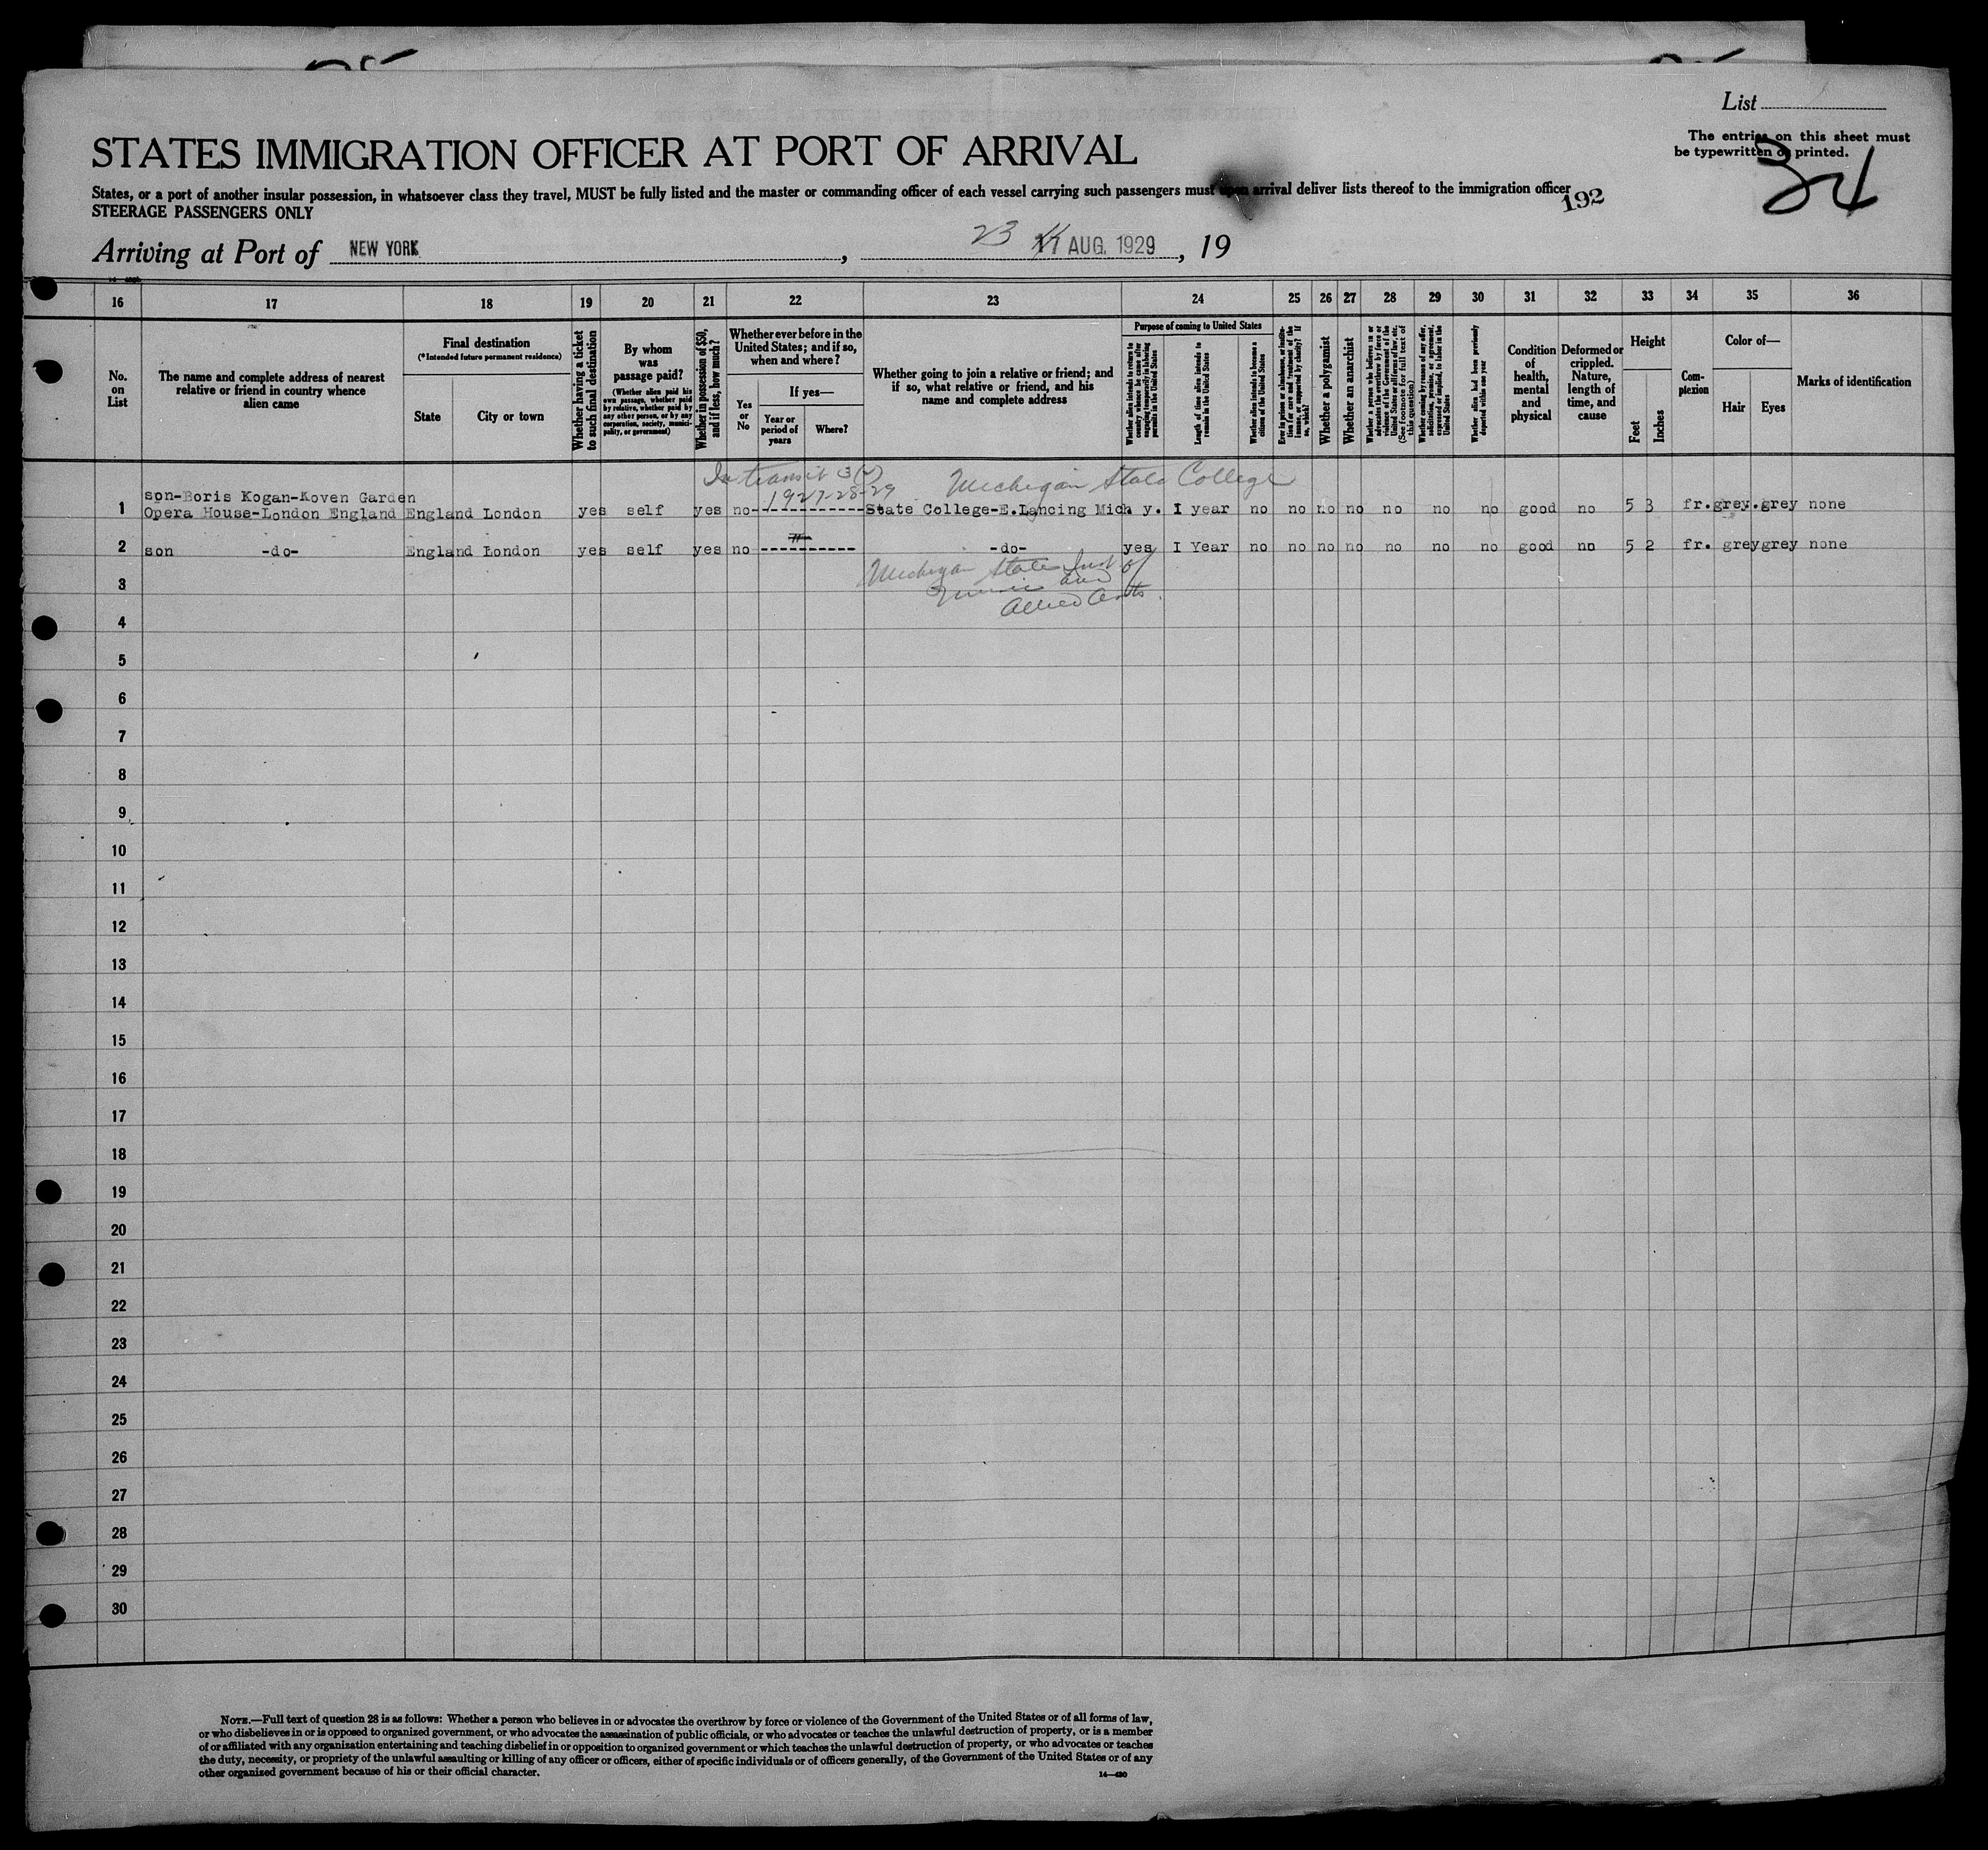 List
The entries on this sheet must
be typewritten or printed.
34
STATES IMMIGRATION OFFICER AT PORT OF ARRIVAL
States, or a port of another insular possession, in whatsoever class they travel, MUST be fully listed and the master or commanding officer of each vessel carrying such passengers must upon arrival deliver lists thereof to the immigration officer
STEERAGE PASSENGERS ONLY
192
Arriving at Port of NEW YORK, 23 11 AUG. 1929, 19
16 17 18 19 20 21 22 23 24 25 26 27 28 29 30 31 32 33 34 35 36
No. on List
The name and complete address of nearest relative or friend in country whence alien came
Final destination
(*Intended future permanent residence)
State
City or town
Whether having a ticket to such final destination
By whom was passage paid?
(Whether alien paid his own passage, whether paid by relative, whether paid by any other person, or by any corporation, society, municipality, or government)
Whether in possession of $50, and if less, how much?
Whether ever before in the United States; and if so, when and where?
Yes or No
If yes—
Year or period of years
Where?
Whether going to join a relative or friend; and if so, what relative or friend, and his name and complete address
Purpose of coming to United States
Whether alien intends to return to country whence he came after engaging temporarily in laboring pursuits in the United States
Length of time alien intends to remain in the United States
Whether alien intends to become a citizen of the United States
Ever in prison or almshouse, or institution for care and treatment of the insane, or supported by charity? If so, which?
Whether a polygamist
Whether an anarchist
Whether a person who believes in or advocates the overthrow by force or violence of the Government of the United States or all forms of law, etc. (See footnote for full text of this question)
Whether coming by reason of any offer, solicitation, promise, or agreement, expressed or implied, to labor in the United States
Whether alien had been previously deported within one year
Condition of health, mental and physical
Deformed or crippled. Nature, length of time, and cause
Height
Feet
Inches
Com-plexion
Color of—
Hair
Eyes
Marks of identification
In transit 3(2)
1927-28-29
Michigan State College
son-Boris Kogan-Koven Garden
1 Opera House-London England England London yes self yes no-------------State College-E.Lancing Mich y. I year no no no no no no no good no 5 3 fr.grey.grey none
2 son -do- England London yes self yes no ---------- -do- yes I Year no no no no no no no good no 5 2 fr. greygrey none
Michigan State Inst of
Music and
Allied Arts.
3
4
5
6
7
8
9
10
11
12
13
14
15
16
17
18
19
20
21
22
23
24
25
26
27
28
29
30
NOTE.—Full text of question 28 is as follows: Whether a person who believes in or advocates the overthrow by force or violence of the Government of the United States or of all forms of law,
or who disbelieves in or is opposed to organized government, or who advocates the assassination of public officials, or who advocates or teaches the unlawful destruction of property, or is a member
of or affiliated with any organization entertaining and teaching disbelief in or opposition to organized government or which teaches the unlawful destruction of property, or who advocates or teaches
the duty, necessity, or propriety of the unlawful assaulting or killing of any officer or officers, either of specific individuals or of officers generally, of the Government of the United States or of any
other organized government because of his or their official character.
14—430